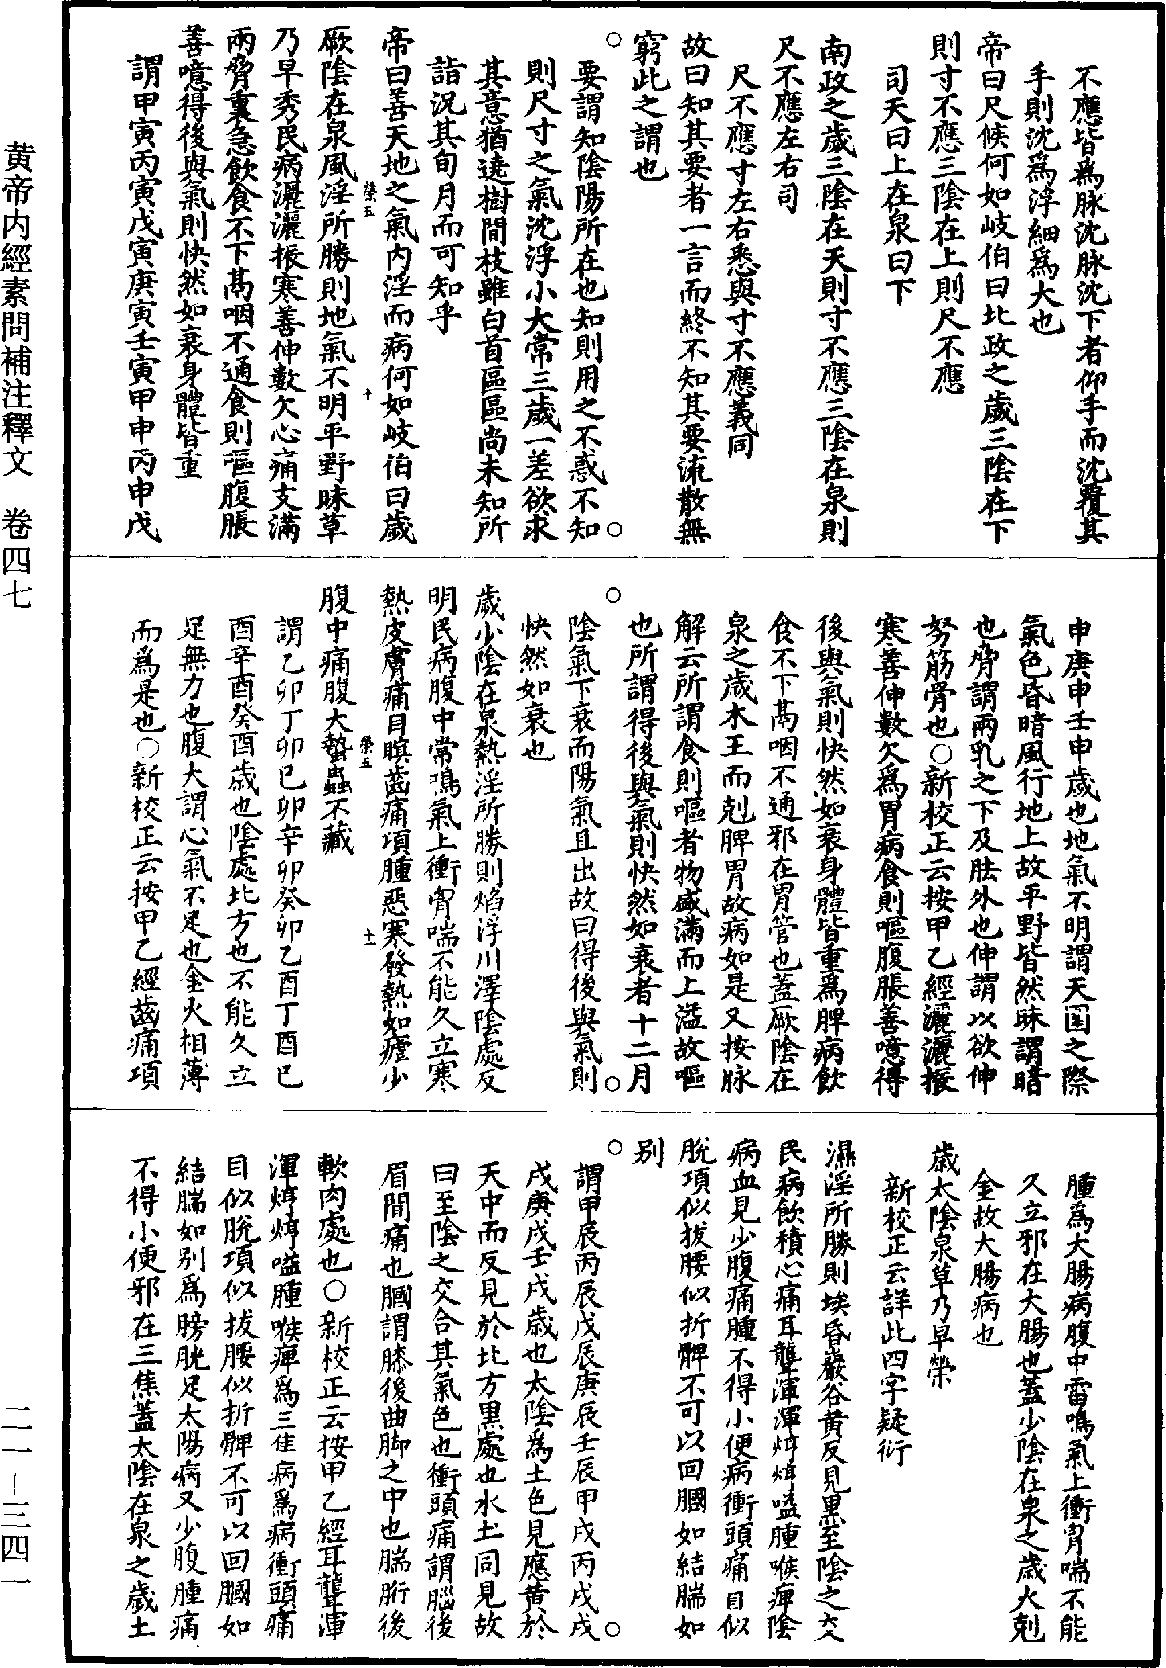 不應皆爲脉沈脉沈下者仰手而沈覆其
手則沈爲浮細爲大也
帝曰尺候何如岐伯曰北政之歲三陰在下
則寸不應三陰在上則尺不應
司天曰上在泉曰下
南政之歲三陰在天則寸不應三陰在泉則
尺不應左右司
尺不應寸左右悉與寸不應義同
故曰知其要者一言而終不知其要流散無
窮此之謂也
要謂知陰陽所在也知則用之不惑不知
則尺寸之氣沈浮小大常三歲一差欲求
其意猶遶樹間枝雖白首區區尚未知所
詣況其旬月而可知乎
帝曰善天地之氣内淫而病何如岐伯曰歲
厥陰在泉風淫所勝則地氣不明平野昧草
乃早秀民病灑灑振寒善伸數欠心痛支滿
兩脅裏急飲食不下鬲咽不通食則嘔腹脹
善噫得後與氣則快然如衰身體皆重
謂甲寅丙寅戊寅庚寅壬寅甲申丙申戊
申庚申壬申歲也地氣不明謂天圍之際
氣色昏暗風行地上故平野皆然昧謂暗
也脅謂兩乳之下及胠外也伸謂以欲伸
努筋骨也○新校正云按甲乙經灑灑振
寒善伸數欠爲胃病食則嘔腹脹善噫得
後與氣則快然如衰身體皆重爲脾病飲
食不下鬲咽不通邪在胃管也蓋厥陰在
泉之歲木王而剋脾胃故病如是又按脉
解云所謂食則嘔者物盛滿而上溢故嘔
也所謂得後與氣則快然如衰者十二月
陰氣下衰而陽氣且出故曰得後與氣則
快然如衰也
歲少陰在泉熱淫所勝則焰浮川澤陰處反
明民病腹中常鳴氣上衝胷喘不能久立寒
熱皮膚痛目瞑齒痛項腫惡寒發熱如瘧少
腹中痛腹大蟄蟲不藏
謂乙卯丁卯己卯辛卯癸卯乙酉丁酉己
酉辛酉癸酉歲也陰處北方也不能久立
足無力也腹大謂心氣不足也金火相薄
而爲是也○新校正云按甲乙經齒痛項
腫爲大腸病腹中雷鳴氣上衝胷喘不能
久立邪在大腸也蓋少陰在泉之歲火剋
金故大腸病也
歲太陰泉草乃早榮
新校正云詳此四字疑衍
濕淫所勝則埃昏巖谷黄反見黑至陰之交
民病飲積心痛耳聾渾渾焞焞嗌腫喉痺陰
病血見少腹痛腫不得小便病衝頭痛目似
脫項似拔腰似折髀不可以回膕如結腨如
别
謂甲辰丙辰戊辰庚辰壬辰甲戌丙戌戊
戌庚戌壬戌歲也太陰爲土色見應黄於
天中而反見於北方黑處也水土同見故
曰至陰之交合其氣色也衝頭痛謂腦後
眉間痛也膕謂膝後曲脚之中也腨胻後
軟肉處也○新校正云按甲乙經耳聾渾
渾焞焞嗌腫喉痺爲三焦病爲病衝頭痛
目似脫項似拔腰似折髀不可以回膕如
結腨如别爲膀胱足太陽病又少腹腫痛
不得小便邪在三焦蓋太陰在泉之歲土
黄帝内經素問補注釋文　卷四七
二一－三四一